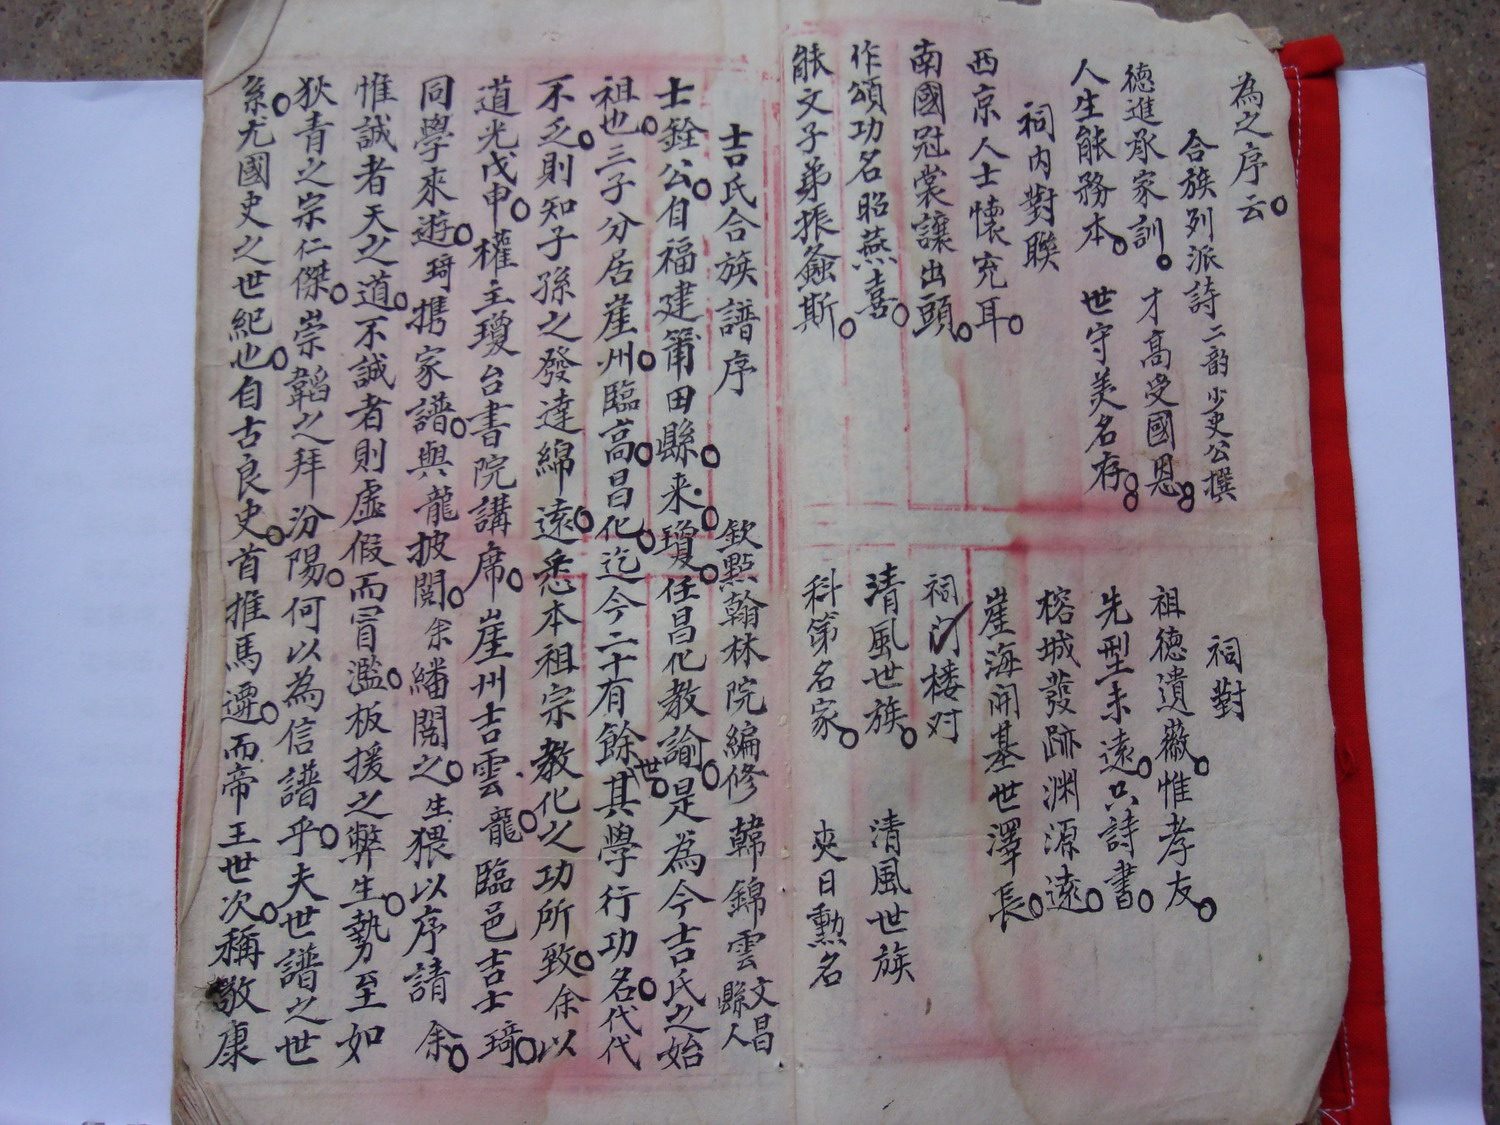 為之序云
合族列派詩 二韵 少史公撰
德進承家訓 才高受國恩
人生能務本 世守美名存
祠內對聯
西京人士懷充耳
南國冠裳讓出頭
作頌功名昭燕喜
能文子弟振螽斯
祠對
祖德遺徽惟孝友
先型未遠只詩書
榕城發跡渊源遠
崖海開基世澤長
祠门楼对
清風世族 清風世族
科第名家 奕日勲名
吉氏合族譜序 欽點翰林院編修 韓錦雲 文昌縣人
士銓公自福建莆田縣来瓊任昌化教諭是為今吉氏之始
祖也三子分居崖州臨高昌化迄今二十有餘世其學行功名代代
不乏則知子孫之發達綿遠悉本祖宗教化之功所致余以
道光戊申權主瓊台書院講席崖州吉雲龍臨邑吉士琦
同學來遊琦携家譜與龍披閲余繙閲之生猥以序請余
惟誠者天之道不誠者則虛假而冒濫板援之弊生勢至如
狄青之宗仁傑崇韜之拜汾陽何以為信譜乎夫世譜之世
系尤國史之世紀也自古良史首推馬遷而帝王世次稱敬康